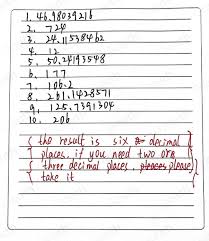 1. 46.98039216
2. 724
3. 24.11538462
4. 12
5. 50.24193548
6. 177
7. 106.2
8. 261.1428571
9. 125.7391304
10. 206
{ the result is six decimal }
{ places. if you need two or
{ three decimal places, please }
{ take it